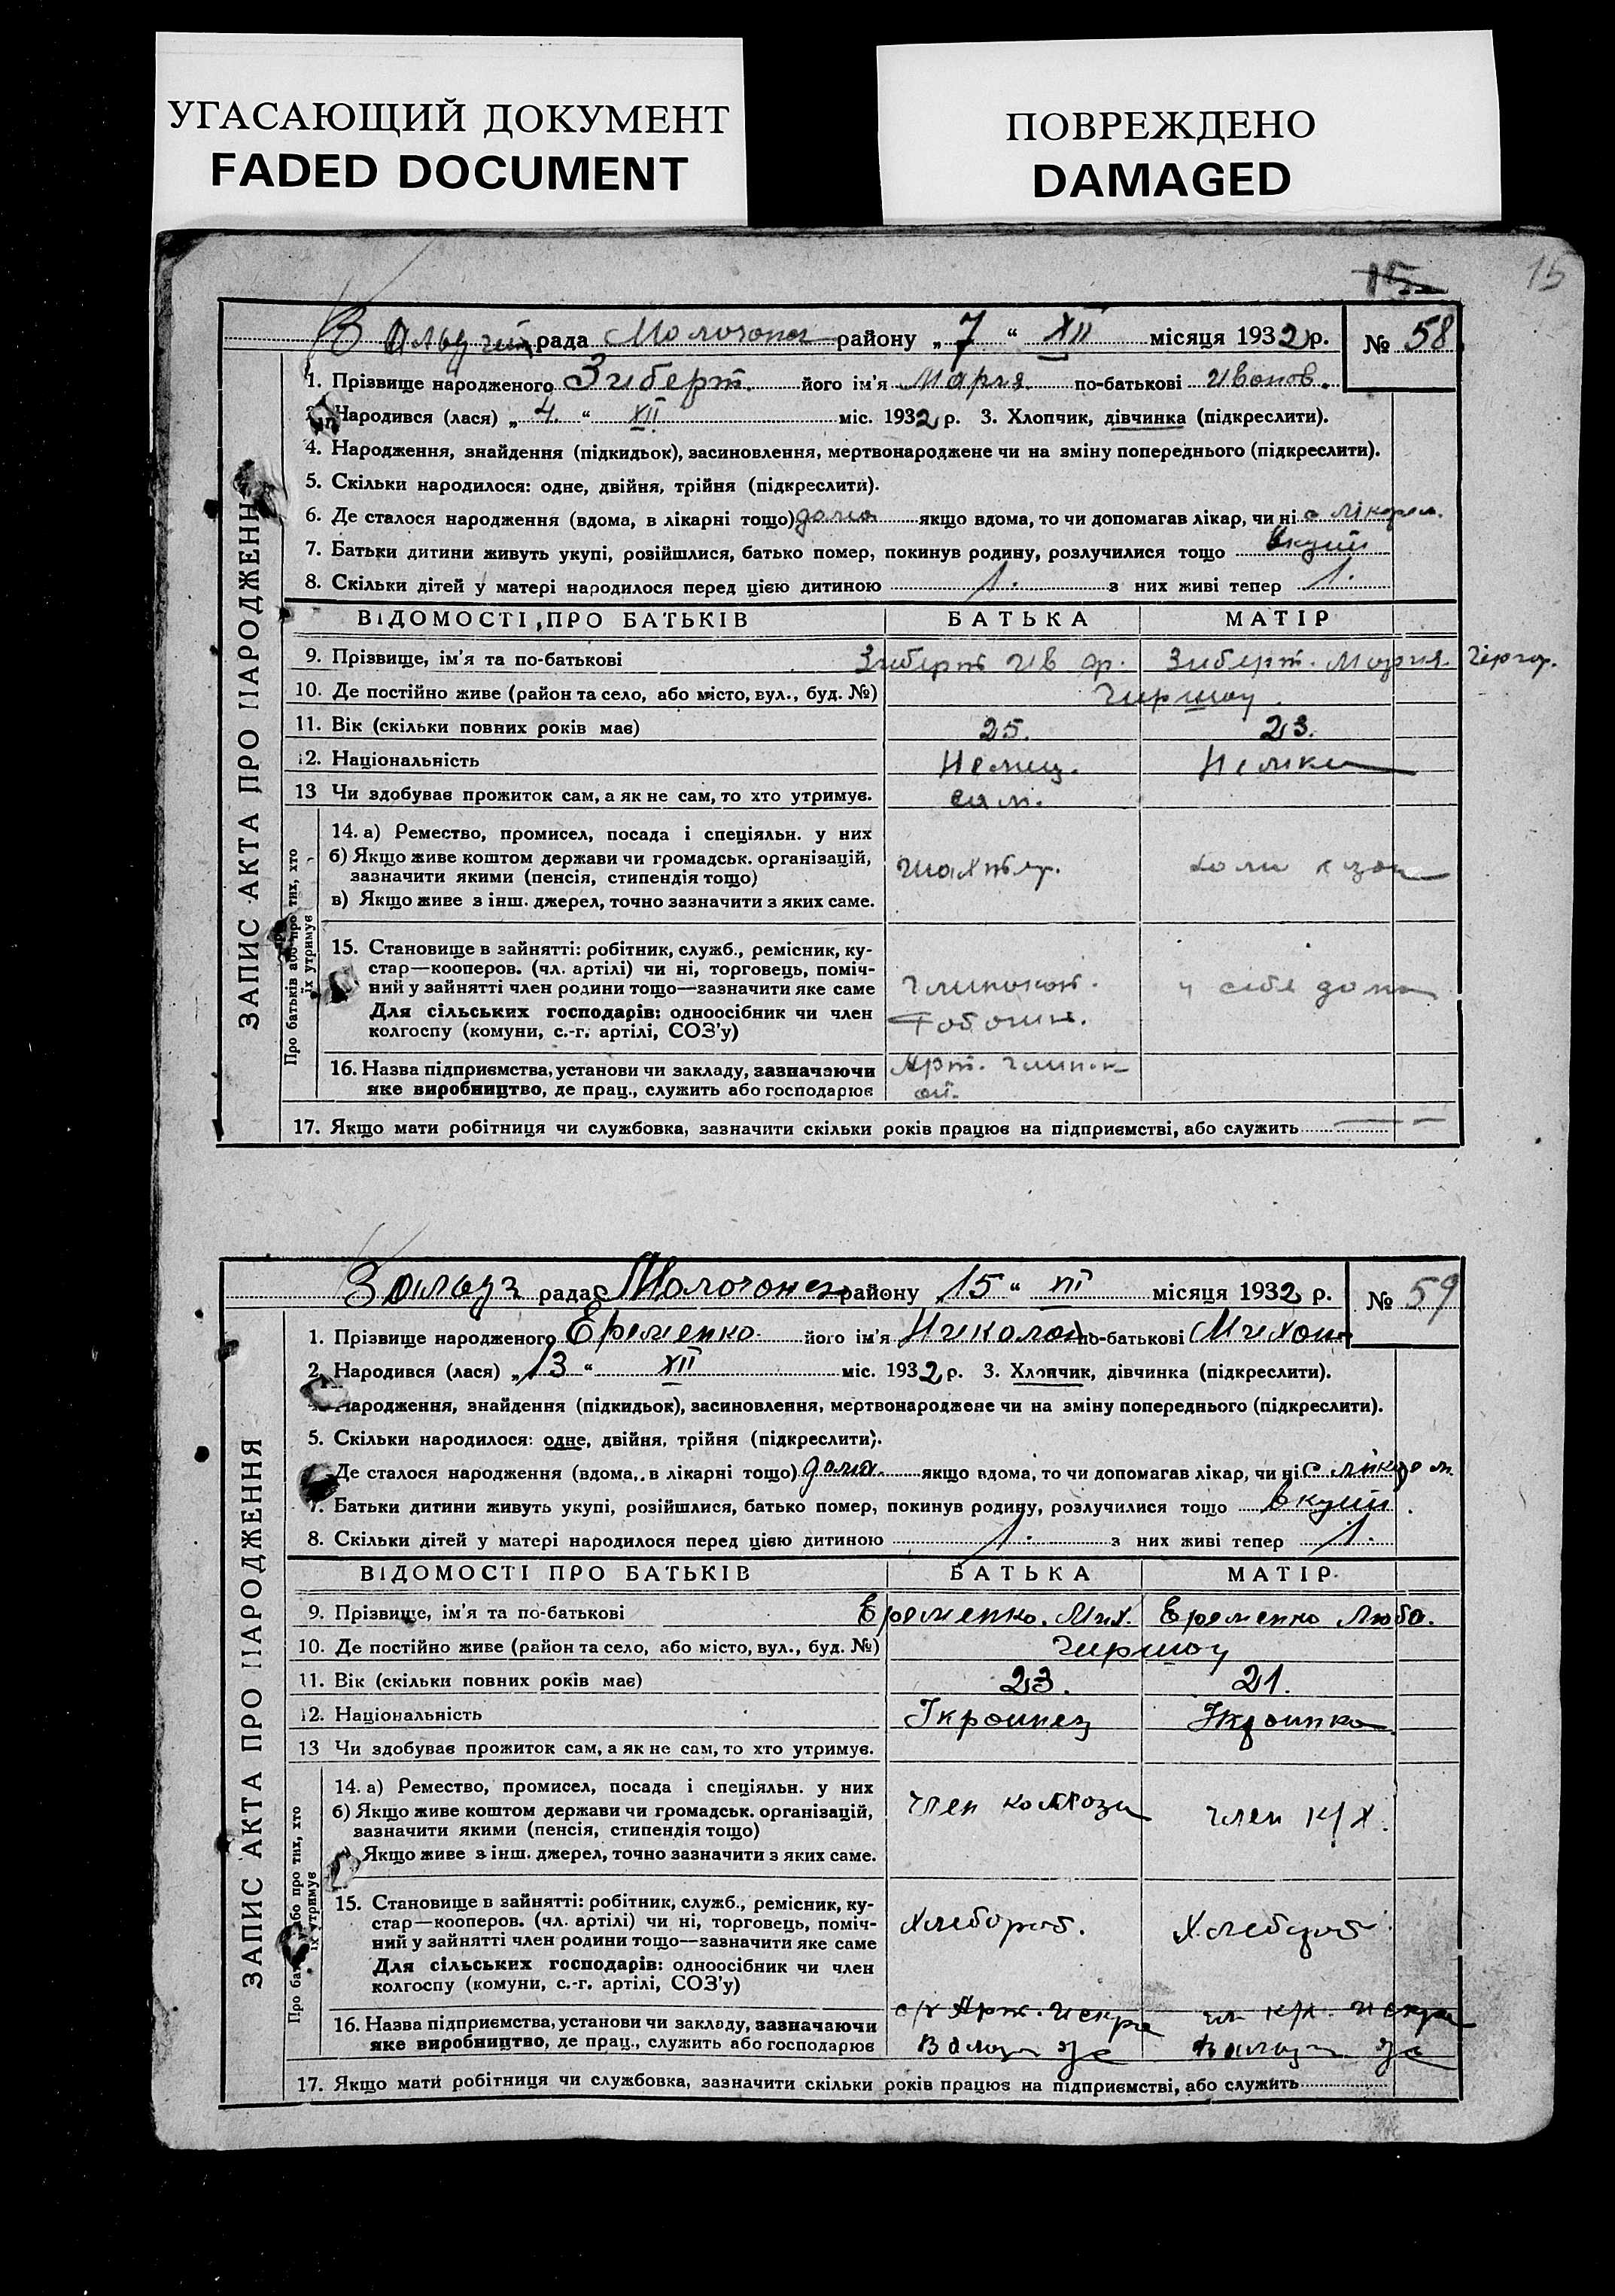 УГАСАЮЩИЙ ДОКУМЕНТ
FADED DOCUMENT
ПОВРЕЖДЕНО
DAMAGED
15
15
рада района „7“ XII місяця 1932 р. № 58
1. Прізвище народженого Зиберт. його ім'я Мария по-батькові Иванов.
Народився (лася) „4.“ XII міс. 1932 р. 3. Хлопчик, дівчинка (підкреслити).
4. Народження, знайдення (підкидьок), засиновлення, мертвонароджене чи на зміну попереднього (підкреслити).
5. Скільки народилося: одне, двійня, трійня (підкреслити).
6. Де сталося народження (вдома, в лікарні тощо) дома якщо вдома, то чи допомагав лікар, чи ні с лікарем.
7. Батьки дитини живуть укупі, розійшлися, батько помер, покинув родину, розлучилися тощо вкупі
8. Скільки дітей у матері народилося перед цією дитиною 1. з них живі тепер 1.
ВІДОМОСТІ ПРО БАТЬКІВ БАТЬКА МАТІР
9. Прізвище, ім'я та по-батькові Зиберт Ив Зиберт. Мария
10. Де постійно живе (район та село, або місто, вул., буд. №) Гиршау
11. Вік (скільки повних років має) 25. 23.
12. Національність Немец. Немка
13 Чи здобував прожиток сам, а як не сам, то хто утримує. сам.
14. а) Ремество, промисел, посада і спеціяльн. у них
б) Якщо живе коштом держави чи громадськ. організацій,
зазначити якими (пенсія, стипендія тощо)
в) Якщо живе з інш. джерел, точно зазначити з яких саме.
15. Становище в зайнятті: робітник, служб., ремісник, ку-
стар—кооперов. (чл. артілі) чи ні, торговець, поміч-
ний у зайнятті член родини тощо—зазначити яке саме у себя дома
Для сільських господарів: одноосібник чи член
колгоспу (комуни, с.-г. артілі, СОЗ'у)
16. Назва підприємства, установи чи закладу, зазначаючи Арт.
яке виробництво, де прац., служить або господарює
17. Якщо мати робітниця чи службовка, зазначити скільки років працює на підприємстві, або служить
ЗАПИС АКТА ПРО НАРОДЖЕННЯ
Про батьків або про тих, хто
їх утримує
рада району „15“ XII місяця 1932 р. № 59
1. Прізвище народженого Еременко його ім'я Николай по-батькові Михаил
2. Народився (лася) „13“ XII міс. 1932 р. 3. Хлопчик, дівчинка (підкреслити).
Народження, знайдення (підкидьок), засиновлення, мертвонароджене чи на зміну попереднього (підкреслити).
5. Скільки народилося: одне, двійня, трійня (підкреслити).
Де сталося народження (вдома, в лікарні тощо) дома. якщо вдома, то чи допомагав лікар, чи ні с лікарем
7. Батьки дитини живуть укупі, розійшлися, батько помер, покинув родину, розлучилися тощо вкупі.
8. Скільки дітей у матері народилося перед цією дитиною 1. з них живі тепер 1.
ВІДОМОСТІ ПРО БАТЬКІВ БАТЬКА МАТІР
9. Прізвище, ім'я та по-батькові Еременко. Мих. Еременко Люба.
10. Де постійно живе (район та село, або місто, вул., буд. №) Гиршау
11. Вік (скільки повних років має) 23. 21.
12. Національність Украинец Украинка
13 Чи здобував прожиток сам, а як не сам, то хто утримує.
14. а) Ремество, промисел, посада і спеціяльн. у них член колхоза член к/х.
б) Якщо живе коштом держави чи громадськ. організацій,
зазначити якими (пенсія, стипендія тощо)
Якщо живе з інш. джерел, точно зазначити з яких саме.
15. Становище в зайнятті: робітник, служб., ремісник, ку-
стар—кооперов. (чл. артілі) чи ні, торговець, поміч- Хлебороб. Хлебороб
ний у зайнятті член родини тощо—зазначити яке саме
Для сільських господарів: одноосібник чи член
колгоспу (комуни, с.-г. артілі, СОЗ'у)
16. Назва підприємства, установи чи закладу, зазначаючи с/х Арт. Искра чл. к/х. Искра
яке виробництво, де прац., служить або господарює
17. Якщо мати робітниця чи службовка, зазначити скільки років працює на підприємстві, або служить
ЗАПИС АКТА ПРО НАРОДЖЕННЯ
Про батьків або про тих, хто
їх утримує